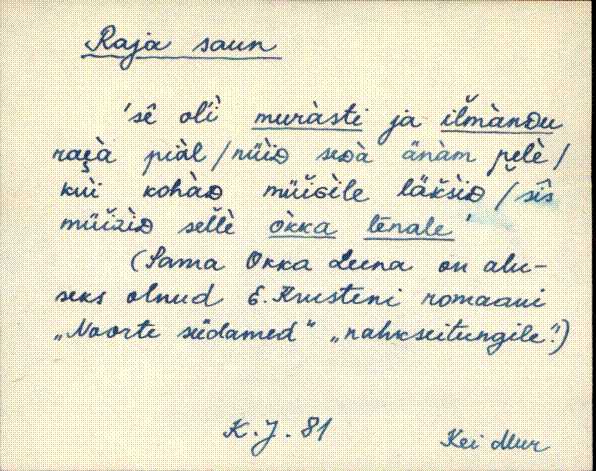 Raja saun
'sê oĺ̀i muràsti ja iľmànᴅu
raɐ̯à piàl / nüìᴅ seᴅà änàm pelè /
kuì kohàᴅ müìsìle läkšìᴅ / sîs
müìzìᴅ sellè òkka lēnale'
(Sama Okka Leena on alu-
seks olnud E. Krusteni romaani
„Noorte südamed" „nahkseitungile".)
K. J. 81
Kei Mur